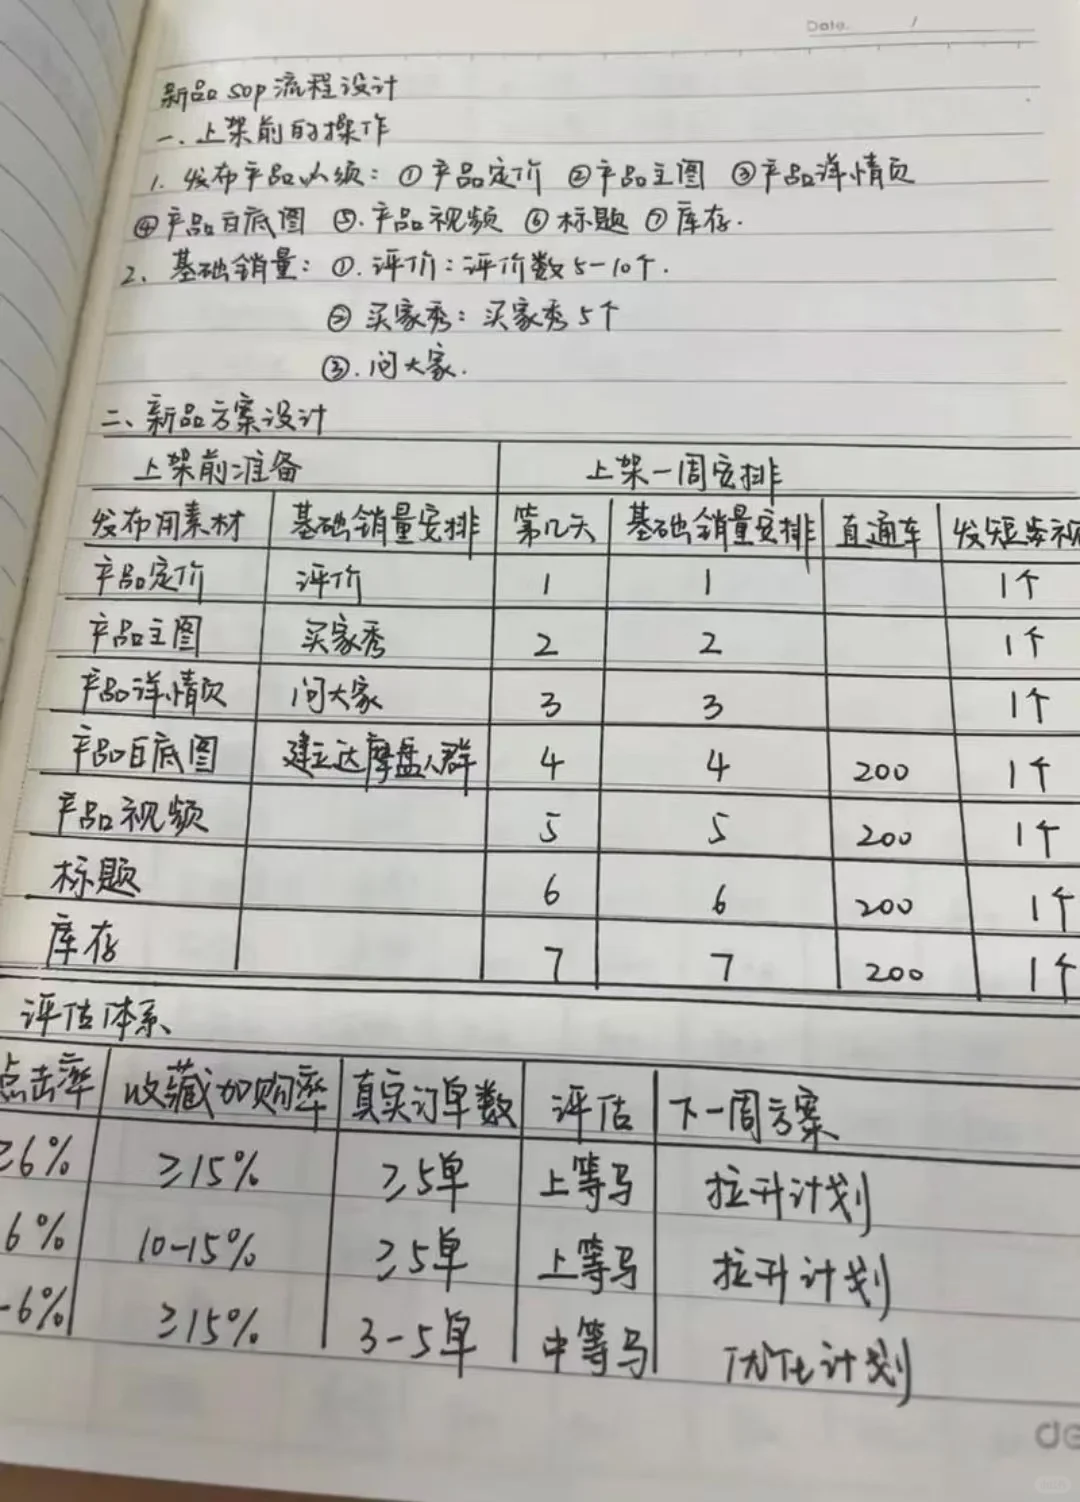 Date. /
新品sop流程设计
一、上架前的操作
1. 发布产品必须：①产品定价 ②产品主图 ③产品详情页
④产品白底图 ⑤.产品视频 ⑥标题 ⑦库存.
2、基础销量：①.评价：评价数5-10个.
②买家秀：买家秀5个
③.问大家.
二、新品方案设计
上架前准备 上架一周安排
发布用素材 基础销量安排 第几天 基础销量安排 直通车 发短步视
产品定价 评价 1 1 1个
产品主图 买家秀 2 2 1个
产品详情页 问大家 3 3 1个
产品白底图 建立达摩盘人群 4 4 200 1个
产品视频 5 5 200 1个
标题 6 6 200 1个
库存 7 7 200 1个
评估体系
点击率 收藏加购率 真实订单数 评估 下一周方案
≥6% ≥15% ≥5单 上等马 拉升计划
6% 10-15% ≥5单 上等马 拉升计划
-6% ≥15% 3-5单 中等马 优化计划
de